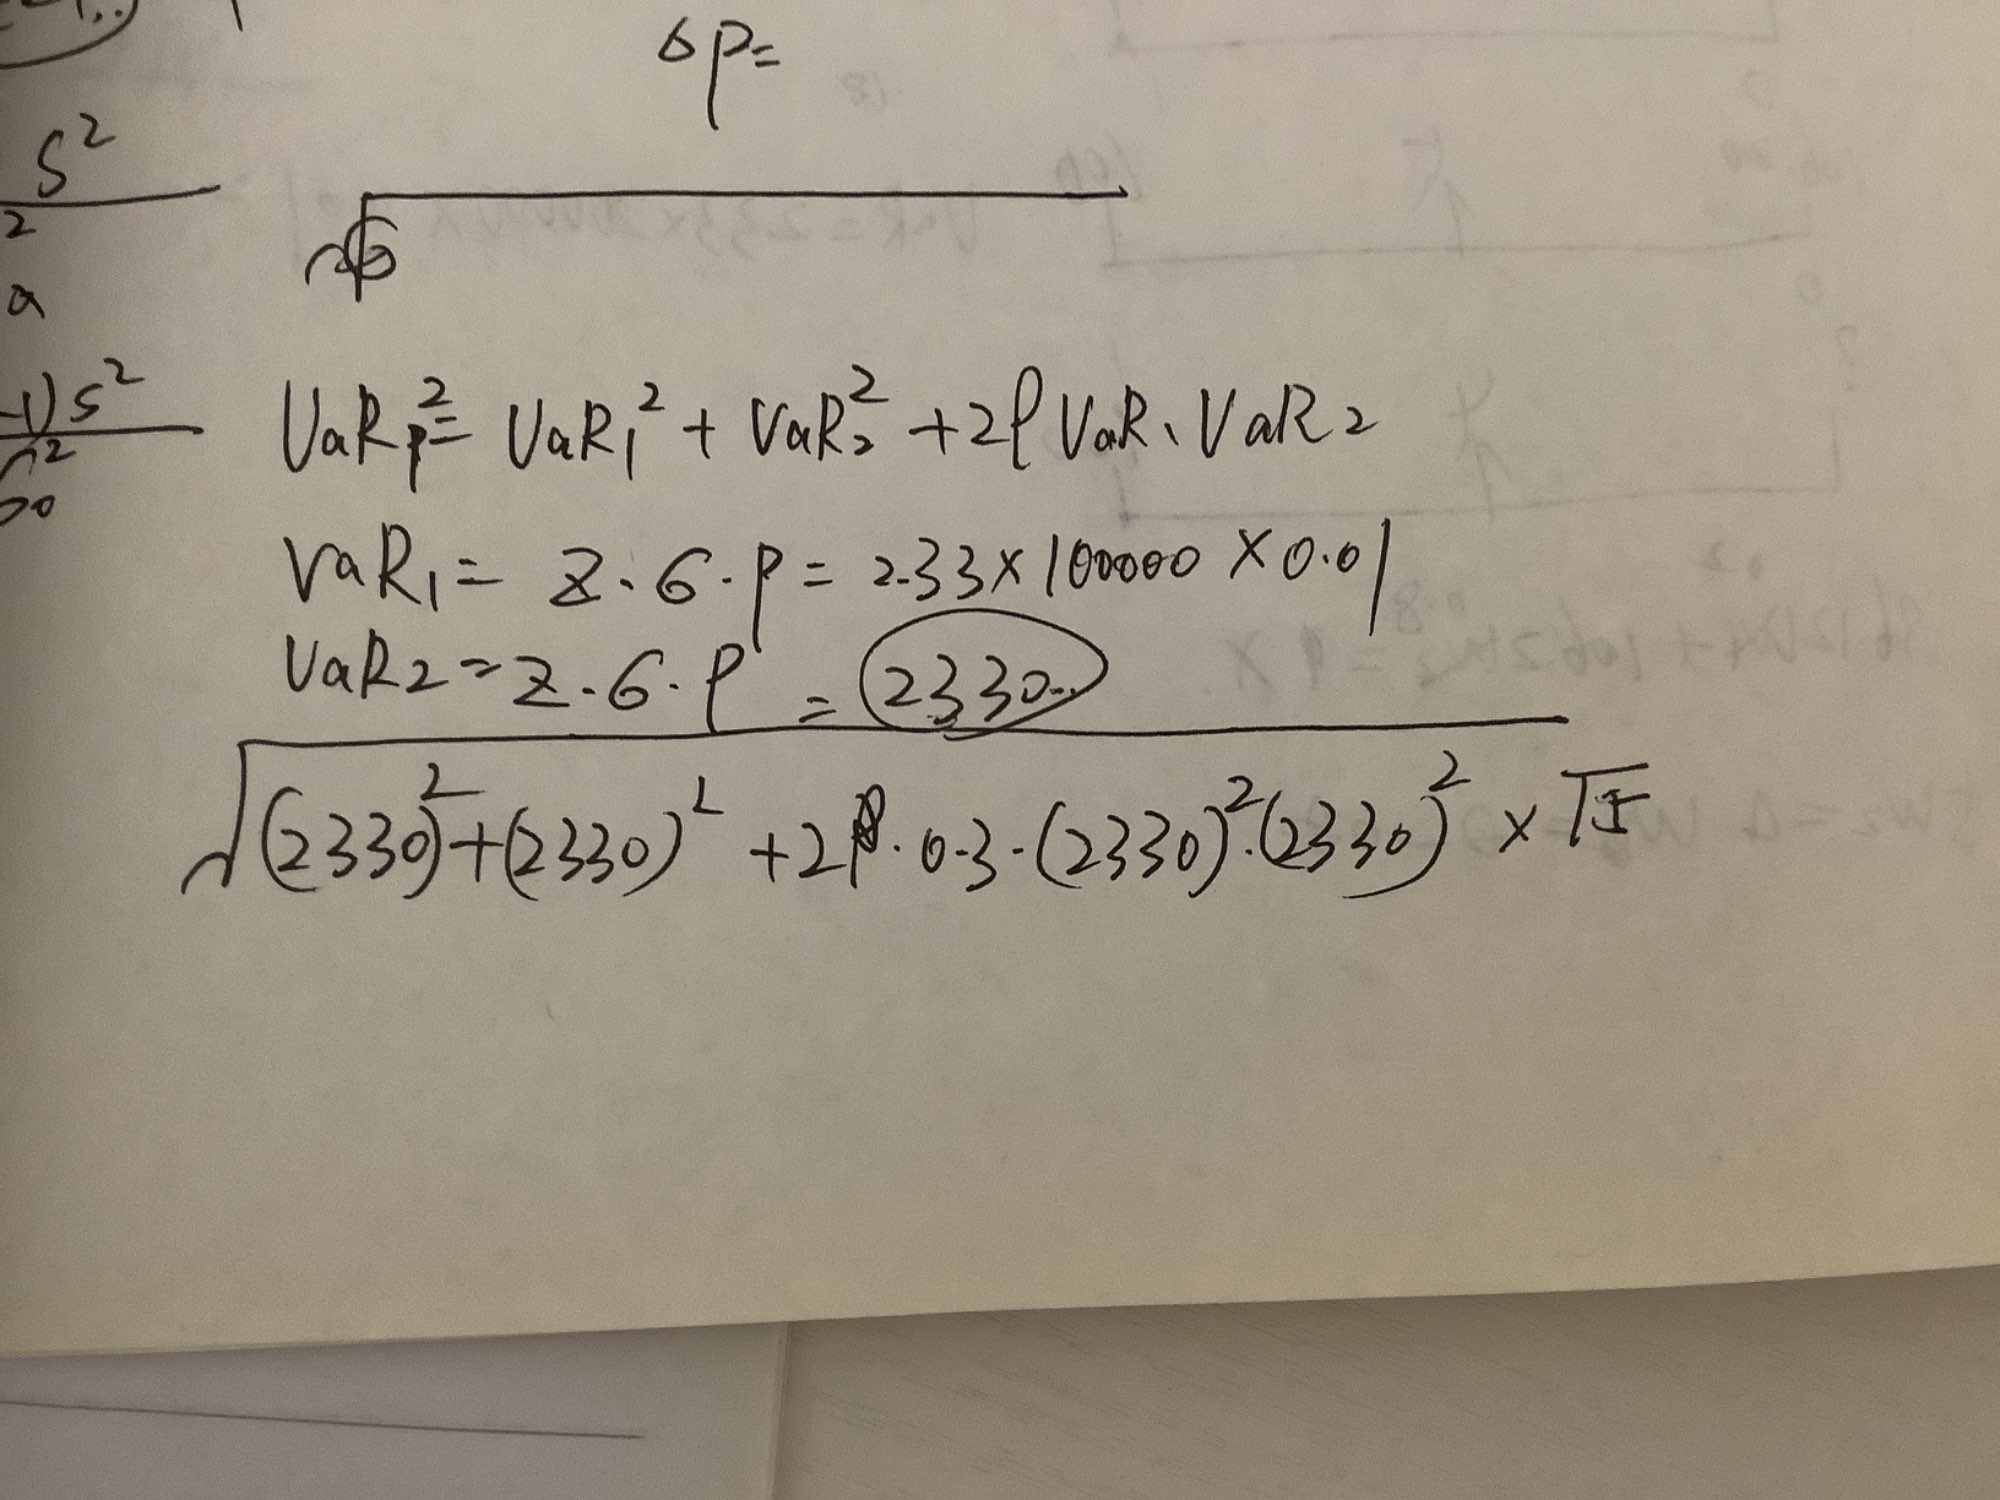 σp=
S²
2
a
-1)S²
VaRp² = VaR₁² + VaR₂² + 2ρVaR₁VaR₂
VaR₁ = Z·σ·P = 2.33×100000×0.01
VaR₂ = Z·σ·P = 2330
√(2330)²+(2330)²+2·0.3·(2330)²·(2330)² × √5